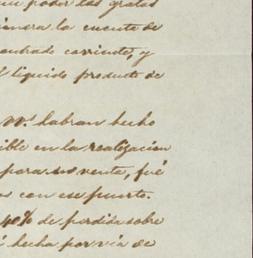 en poder las gratas
la cuenta de
entrado corriente, y
l liquido producto de
Vds. habran hecho
ible en la realizacion
para su venta, fué
os con ese puerto.
40% de perdida sobre
i hecha por via de